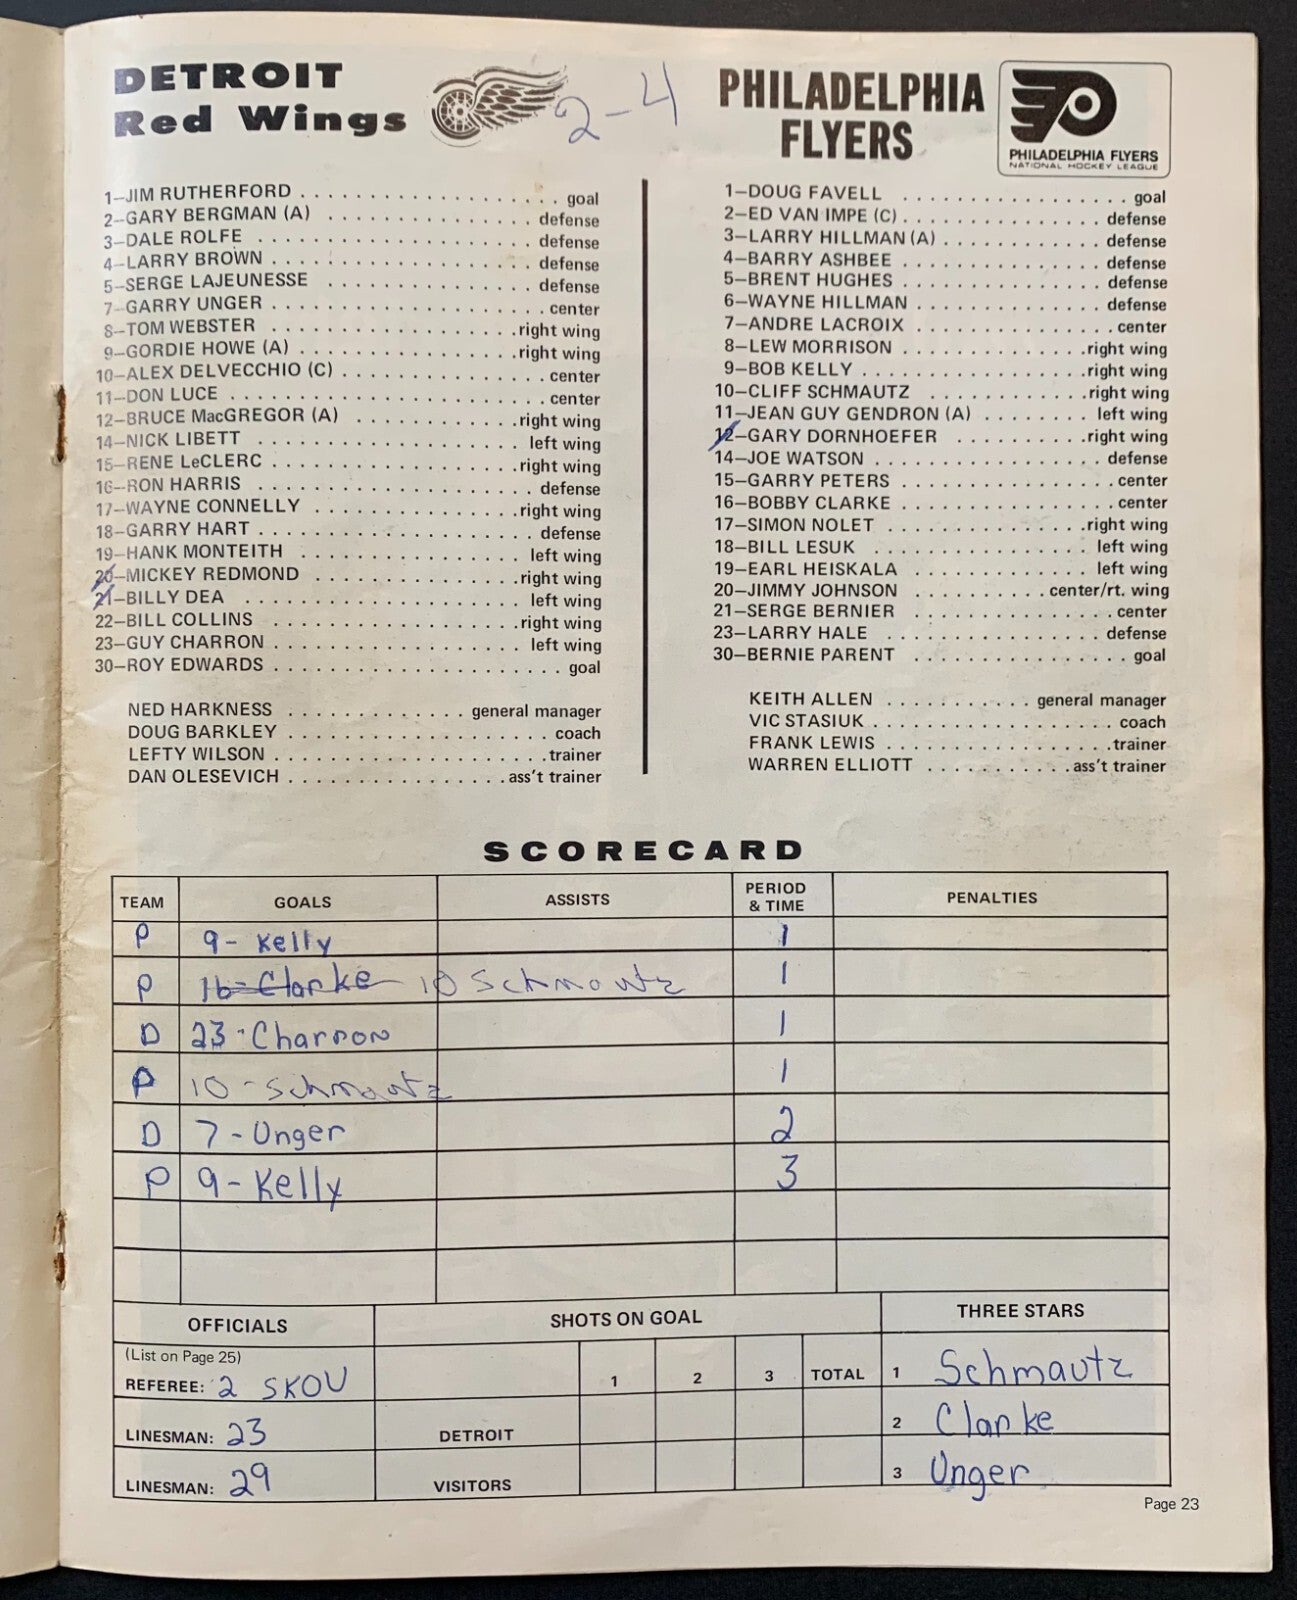 DETROIT
Red Wings
2-4
PHILADELPHIA
FLYERS
PHILADELPHIA FLYERS
NATIONAL HOCKEY LEAGUE
1—JIM RUTHERFORD . . . . . . . . . . . . . . . . . . goal
2—GARY BERGMAN (A) . . . . . . . . . . . . . . defense
3—DALE ROLFE . . . . . . . . . . . . . . . . . . defense
4—LARRY BROWN . . . . . . . . . . . . . . . . . defense
5—SERGE LAJEUNESSE . . . . . . . . . . . . . . defense
7—GARRY UNGER . . . . . . . . . . . . . . . . . . center
8—TOM WEBSTER . . . . . . . . . . . . . . . . .right wing
9—GORDIE HOWE (A) . . . . . . . . . . . . . . .right wing
10—ALEX DELVECCHIO (C) . . . . . . . . . . . . . center
11—DON LUCE . . . . . . . . . . . . . . . . . . . . center
12—BRUCE MacGREGOR (A) . . . . . . . . . . .right wing
14—NICK LIBETT . . . . . . . . . . . . . . . . . left wing
15—RENE LeCLERC . . . . . . . . . . . . . . . . .right wing
16—RON HARRIS . . . . . . . . . . . . . . . . . . defense
17—WAYNE CONNELLY . . . . . . . . . . . . . .right wing
18—GARRY HART . . . . . . . . . . . . . . . . . . defense
19—HANK MONTEITH . . . . . . . . . . . . . . . left wing
20—MICKEY REDMOND . . . . . . . . . . . . . .right wing
21—BILLY DEA . . . . . . . . . . . . . . . . . . left wing
22—BILL COLLINS . . . . . . . . . . . . . . . . .right wing
23—GUY CHARRON . . . . . . . . . . . . . . . . . left wing
30—ROY EDWARDS . . . . . . . . . . . . . . . . . . . goal
NED HARKNESS . . . . . . . . . . . . . general manager
DOUG BARKLEY . . . . . . . . . . . . . . . . . . . coach
LEFTY WILSON . . . . . . . . . . . . . . . . . . . .trainer
DAN OLESEVICH . . . . . . . . . . . . . . . .ass't trainer
1—DOUG FAVELL . . . . . . . . . . . . . . . . . goal
2—ED VAN IMPE (C) . . . . . . . . . . . . . . . defense
3—LARRY HILLMAN (A) . . . . . . . . . . . . defense
4—BARRY ASHBEE . . . . . . . . . . . . . . . defense
5—BRENT HUGHES . . . . . . . . . . . . . . . defense
6—WAYNE HILLMAN . . . . . . . . . . . . . . defense
7—ANDRE LACROIX . . . . . . . . . . . . . . . center
8—LEW MORRISON . . . . . . . . . . . . . .right wing
9—BOB KELLY . . . . . . . . . . . . . . . . .right wing
10—CLIFF SCHMAUTZ . . . . . . . . . . . . .right wing
11—JEAN GUY GENDRON (A) . . . . . . . . left wing
12—GARY DORNHOEFER . . . . . . . . . .right wing
14—JOE WATSON . . . . . . . . . . . . . . . . . defense
15—GARRY PETERS . . . . . . . . . . . . . . . . center
16—BOBBY CLARKE . . . . . . . . . . . . . . . . center
17—SIMON NOLET . . . . . . . . . . . . . . .right wing
18—BILL LESUK . . . . . . . . . . . . . . . . left wing
19—EARL HEISKALA . . . . . . . . . . . . . left wing
20—JIMMY JOHNSON . . . . . . . . . .center/rt. wing
21—SERGE BERNIER . . . . . . . . . . . . . . . center
23—LARRY HALE . . . . . . . . . . . . . . . . defense
30—BERNIE PARENT . . . . . . . . . . . . . . . . goal
KEITH ALLEN . . . . . . . . . . . general manager
VIC STASIUK . . . . . . . . . . . . . . . . . . . coach
FRANK LEWIS . . . . . . . . . . . . . . . . . .trainer
WARREN ELLIOTT . . . . . . . . . . .ass't trainer
SCORECARD
TEAM GOALS ASSISTS PERIOD & TIME PENALTIES
P 9- Kelly 1
P 16-Clarke 10 Schmoutz 1
D 23-Charron 1
P 10-Schmautz 1
D 7-Unger 2
P 9-Kelly 3
OFFICIALS SHOTS ON GOAL THREE STARS
(List on Page 25)
REFEREE: 2 SKOV 1 2 3 TOTAL 1 Schmautz
LINESMAN: 23 DETROIT 2 Clarke
LINESMAN: 29 VISITORS 3 Unger
Page 23